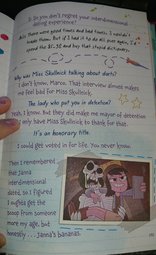 D: So you don't regret your interdimensional
going experience?
A: There were good times and bad times. I wouldn't
them. But if I had to do it all over again, I'd
spend the $5.50 and buy that stupid dictionary.
Why was Miss Skullnick talking about darts?
I don't know, Marco. That interview almost makes
me feel bad for Miss Skullnick.
The lady who put you in detention?
Yeah, I know. But they did make me mayor of detention
only have Miss Skullnick to thank for that.
It's an honorary title.
I could get voted in for life. You never know.
Then I remembered
that Janna
interdimensional
dated, so I figured
I oughta get the
scoop from someone
more my age, but
honestly... Janna's bananas.